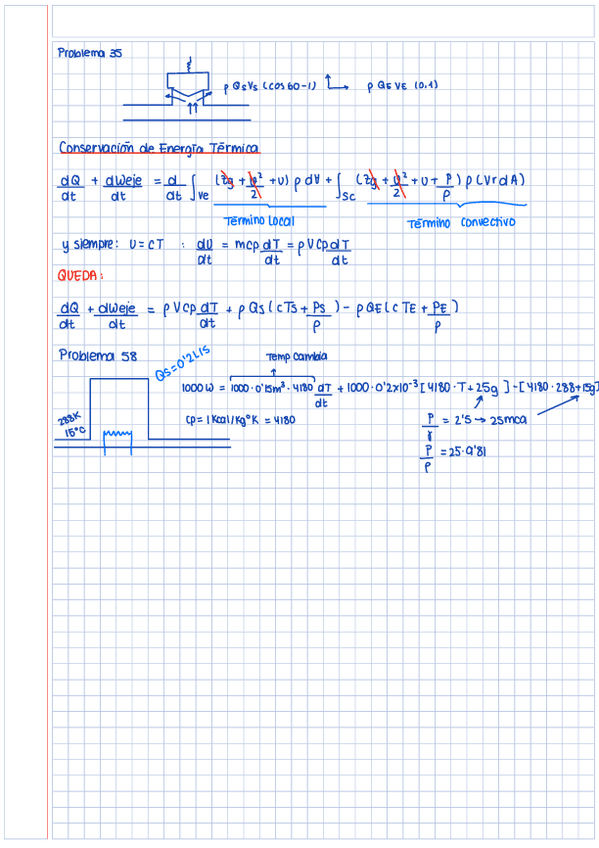 Problema 35
ρ QsVs (cos60-1) ρ QE VE (0,1)
Conservación de Energía Térmica
dQ/dt + dWeje/dt = d/dt ∫Ve (zg + v²/2 + u) ρ dV + ∫Sc (zg + v²/2 + u + P/ρ) ρ (Vr dA)
Término Local Término Convectivo
y siempre: U = cT : dU/dt = mcp dT/dt = ρ V cp dT/dt
QUEDA:
dQ/dt + dWeje/dt = ρ V cp dT/dt + ρ Qs (cTs + Ps/ρ) - ρ QE (cTE + PE/ρ)
Problema 58
Qs = 0'2 L/s
Temp cambia
1000 W = 1000 · 0'15m³ · 4180 dT/dt + 1000 · 0'2x10⁻³ [4180 · T + 25g] - [4180 · 288 + 15g]
288K
15°C
cp = 1 Kcal/kg°K = 4180
P/γ = 2'5 → 25mca
P/ρ = 25 · 9'81